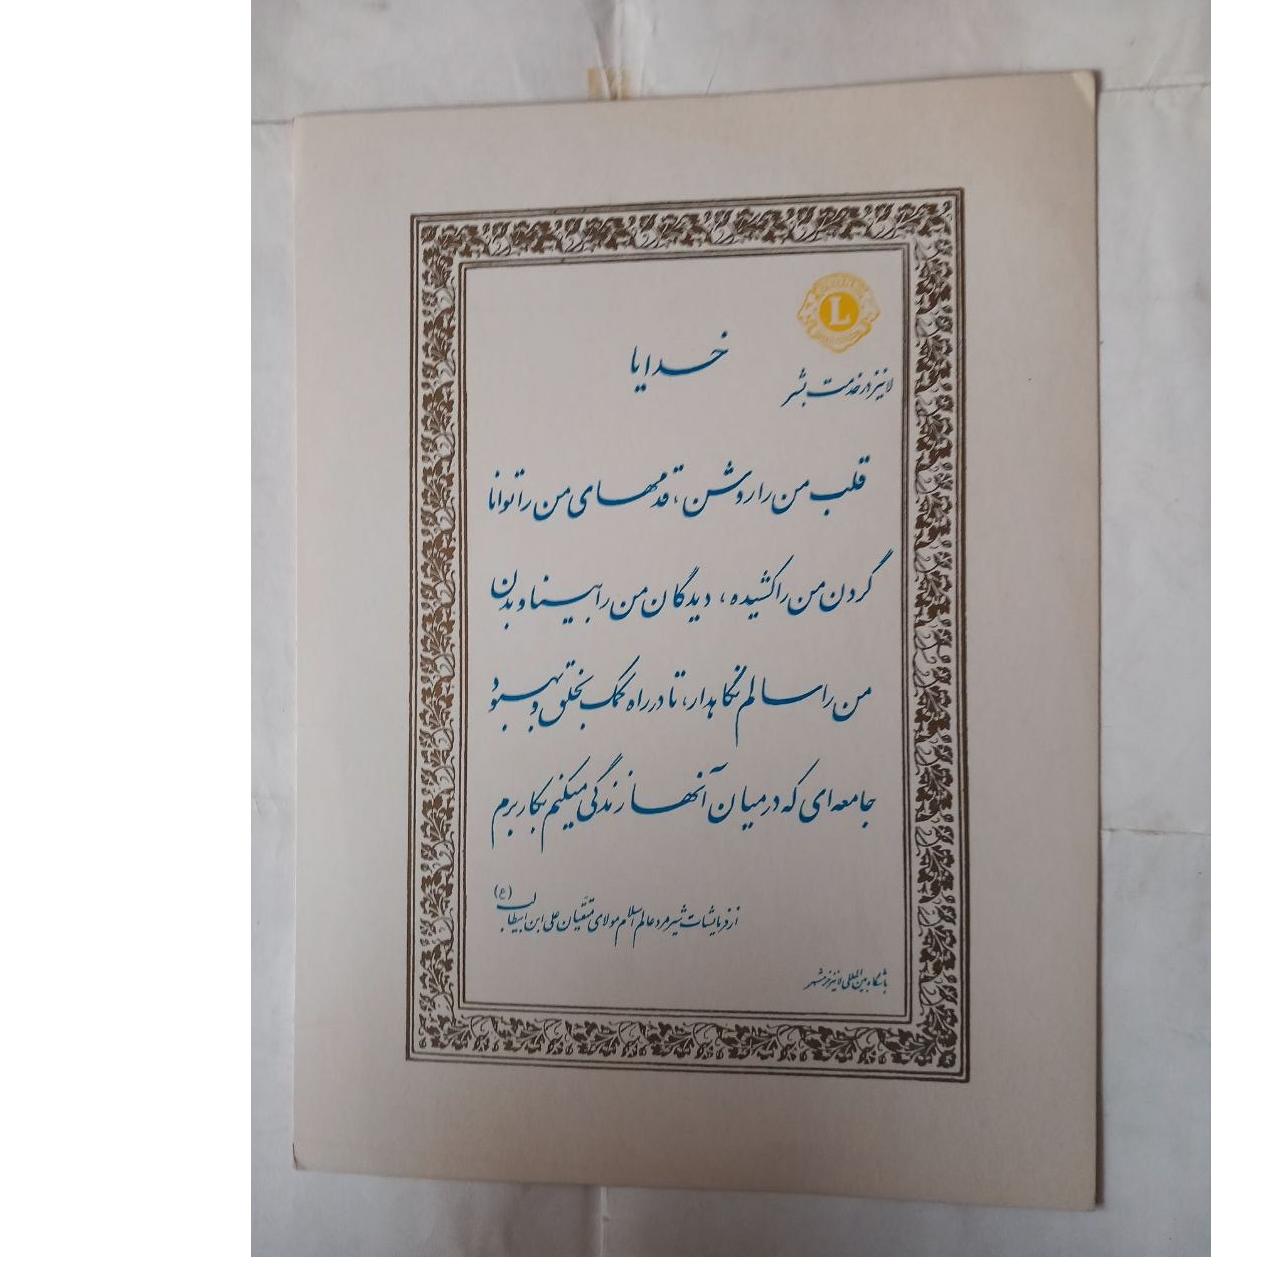 L
لاینز در خدمت بشر
خدایا
قلب من را روشن ، قدمهای من را توانا
گردن من را کشیده ، دیدگان من را بینا و بدن
من را سالم نگاهدار، تا در راه کمک بخلق و بهبود
جامعه‌ای که در میان آنها زندگی میکنم بکار برم
از فرمایشات شیرمرد عالم اسلام مولای متقیان علی ابن ابیطالب (ع)
باشگاه بین‌المللی لاینز خرمشهر